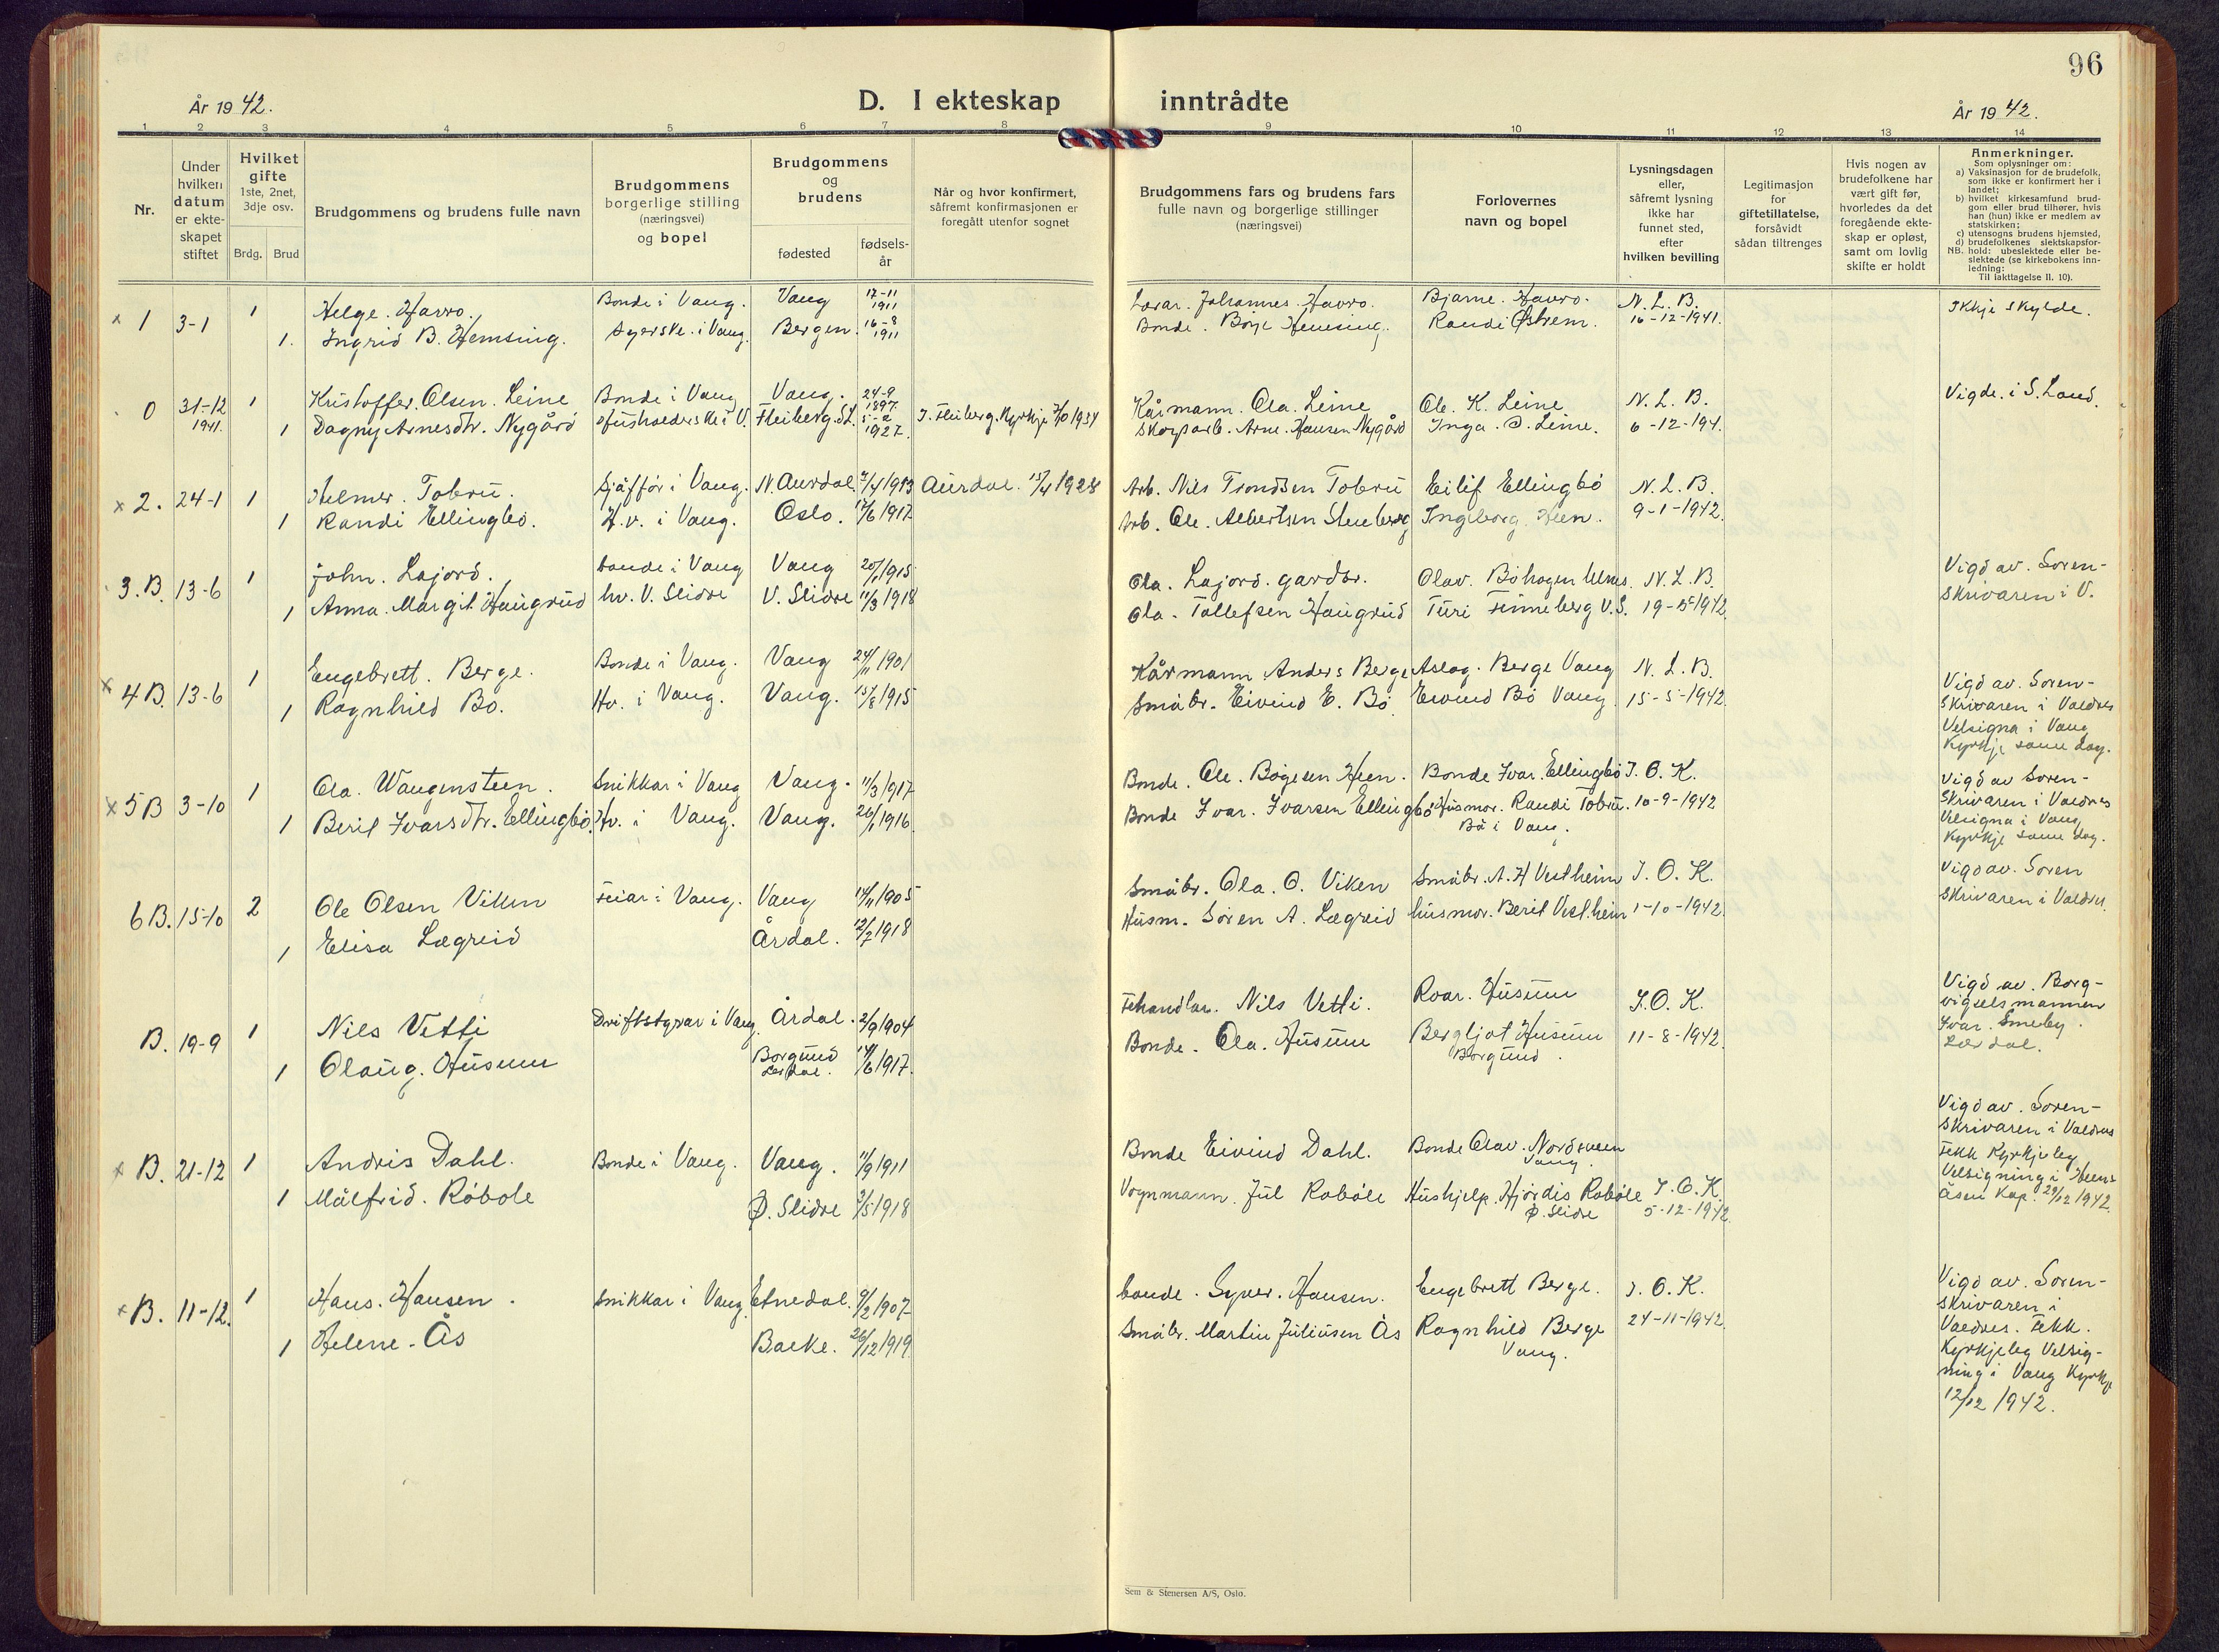 96
År 1942.
D. I ekteskap inntrådte
År 1942.
1 2 3 4 5 6 7 8 9 10 11 12 13 14
Nr.
Under hvilken datum er ekte-skapet stiftet
Hvilket gifte
1ste, 2net, 3dje osv.
Brdg. Brud
Brudgommens og brudens fulle navn
Brudgommens borgerlige stilling (næringsvei) og bopel
Brudgommens og brudens
fødested
fødsels-år
Når og hvor konfirmert, såfremt konfirmasjonen er foregått utenfor sognet
Brudgommens fars og brudens fars fulle navn og borgerlige stillinger (næringsvei)
Forlovernes navn og bopel
Lysningsdagen eller, såfremt lysning ikke har funnet sted, efter hvilken bevilling
Legitimasjon for giftetillatelse, forsåvidt sådan tiltrenges
Hvis nogen av brudefolkene har vært gift før, hvorledes da det foregående ekte-skap er opløst, samt om lovlig skifte er holdt
Anmerkninger.
Som oplysninger om:
a) Vaksinasjon for de brudefolk, som ikke er konfirmert her i landet;
b) hvilket kirkesamfund brud-gom eller brud tilhører, hvis han (hun) ikke er medlem av statskirken;
c) utensogns brudens hjemsted,
d) brudefolkenes slektskapsfor-
NB. hold: ubeslektede eller be-slektede (se kirkebokens inn-ledning:
Til iakttagelse II. 10).
x 1 3-1 1 Helge. Havro. Bonde i Vang. Vang 17-11 1911 Lærar. Johannes. Havro. Bjarne. Havro. N. L. B. Ikkje skylde.
1. Ingrid B. Hemsing. i Vang. Bergen. 16-8 1911 Bonde. Hemsing. Randi Østrem. 16-12-1941.
0 31-12 1941. 1 Kristoffer. Olsen. Leine Bonde i Vang Vang. 24-9 1897. Kårmann. Ola. Leine Ole. K. Leine. N. L. B. Vigde. i S. Land.
1 Dagny Arnesdtr. Nygård i V. Fleiberg. S.L. 5-2 1927. I. Fleiberg. Kyrkje 1934 Skogsarb. Arne. Hansen Nygård Inga. O. Leine. 6-12-194.
x 2. 24-1 1 Helmer. Tobru. Sjåfför i Vang. N. Aurdal. 1913 Aurdal. 15/4 1928 Arb. Nils Trondsen Tobru Eilif Ellingbö N. L. B.
1 Randi Ellingbö. H.v. i Vang. Oslo. 1917 Arb. Ole. Albertsen Steuberg Ingeborg. Heen. 9-1-1942.
3. B. 13-6 1 John. Lajord. bonde i Vang Vang 1915 Ola. Lajord. gardbr. Olav. Böhagen Ulnes N. L. B. Vigd av. Soren-
1 Anna. Margit. Haugrud hv. V. Slidre V. Slidre 11/3 1918 Ola. Tollefsen Haugrud Turi Finneberg V.S. 19-5-1942. skrivaren i V.
x 4 B. 13-6 1 Engebrett. Berge. Bonde i Vang. Vang 24/11 1901 Kårmann Anders Berge Aslag. Berge Vang N. L. B. Vigd av. Soren-
1 Ragnhild Bö. Hv. i Vang. Vang. 15/8 1915 Småbr. Eivind E. Bö Eivind Bö Vang. 15-5-1942. skrivaren i Valdres
Velsigna i Vang
Kyrkje same dag.
x 5 B 3-10 1 Ola. Wangensteen. Snikkar i Vang Vang. 11/3 1917 Bonde. Ole. Bøgesen Heen. Bonde Ivar. Ellingbö I. O. K. Vigd av Soren-
1 Beril Ivarsdtr. Ellingbö. Hv. i Vang. Vang. 26/1 1916 Bonde Ivar. Ivarsen Ellingbö Husmor. Randi Tobru. 10-9-1942 skrivaren i Valdres
Bö i Vang. Velsigna i Vang
Kyrkje same dag.
6 B. 15-10 2 Ole Olsen Viken Feiar i Vang. Vang 14/11 1905 Småbr. Ola. O. Viken Småbr. A. H Vestheim I. O. K. Vigd av. Soren
1 Elisa Lægreid Årdal. 12/7 1918 Husm. Sören A. Lægreid husmor. Berit Vestheim 1-10-1942. skrivaren i Valdres.
B. 19-9 1 Nils Vetti Driftstyrar i Vang. Årdal. 2/9 1904 Fehandlar. Nils Vetti. Roar. Husum I. O. K. Vigd av. Borg-
1 Olaug. Husum Borgund Lærdal. 14/6 1917. Bonde. Ola. Husum Bergljot Husum Borgund. 11-8-1942. vigselsmannen
Ivar. Smeby.
Lærdal.
x B. 21-12 1 Andris Dahl. Bonde i Vang. Vang. 11/9 1911 Bonde Eivind Dahl. Bonde Olav. Nordsveen Vang. Vigd av. Soren-
skrivaren i Valdres
1 Målfrid. Röböle Ø. Slidre 3/5 1918 Vognmann. Jul Röböle Hushjelp. Hjördis Röböle Ø. Slidre I. O. K. 5-12-1942. Fekk Kyrkjeleg
Velsigning i Heens-
åsen Kap. 29/12 1942.
x B. 11-12. 1 Hans. Hansen. Snikkar i Vang. Etnedal. 9/2 1907 bonde. Syver. Hansen. Engebrett Berge. I. O. K. Vigd av. Soren-
1 Helene. Ås Bakke. 26/12 1919. Småbr. Martin Juliusen Ås Ragnhild Berge Vang. 24-11-1942. skrivaren i
Valdres. Fekk.
Kyrkjeleg Velsig-
ning i Vang Kyrkje
12/12 1942.
Sem & Stenersen A/S, Oslo.